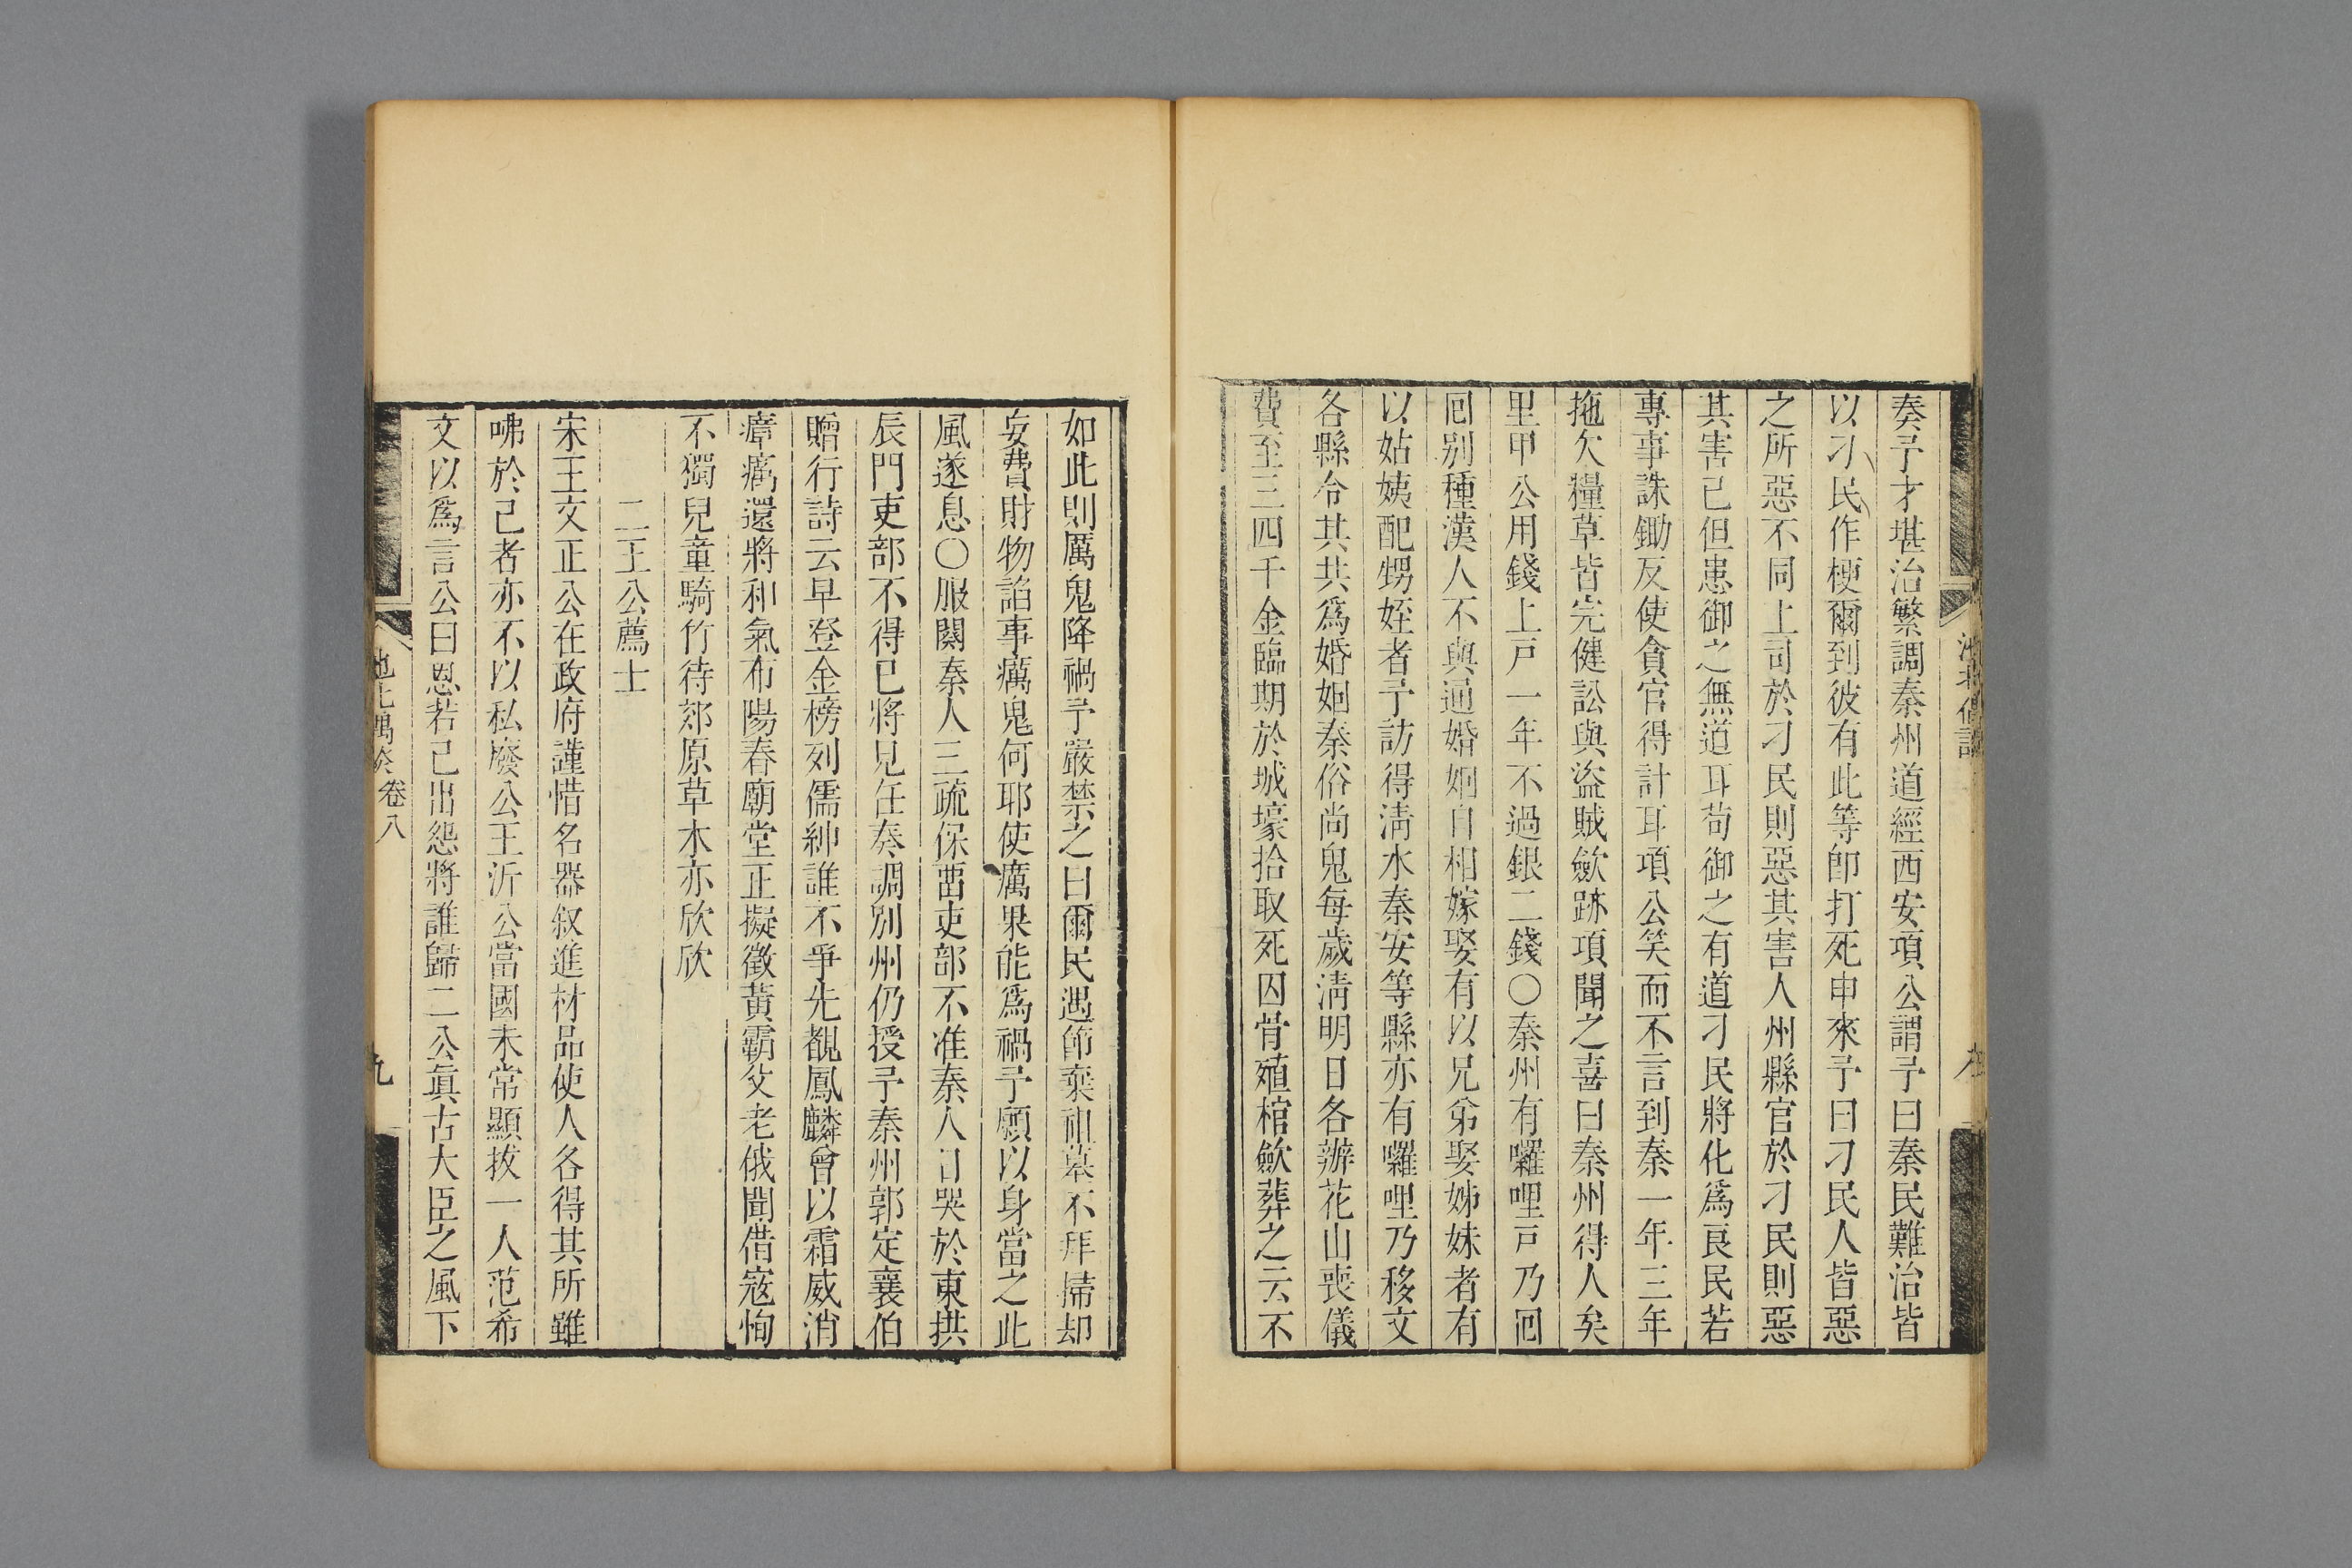 奏予才堪治繁調秦州道經西安項公謂予曰秦民難治皆
以刁民作梗爾到彼有此等卽打死申來予曰刁民人皆惡
之所惡不同上司於刁民則惡其害人州縣官於刁民則惡
其害己但患御之無道耳苟御之有道刁民將化爲良民若
專事誅鋤反使貪官得計耳項公笑而不言到秦一年三年
拖欠糧草皆完健訟與盜賊斂跡項聞之喜曰秦州得人矣
里甲公用錢上戸一年不過銀二錢〇秦州有囉哩戸乃囘
囘别種漢人不與通婚姻自相嫁娶有以兄弟娶姊妹者有
以姑姨配甥姪者予訪得淸水秦安等縣亦有囉哩乃移文
各縣令其共爲婚姻秦俗尚鬼每歲淸明日各辦花山喪儀
費至三四千金臨期於城壕拾取死囚骨殖棺斂葬之云不
如此則厲鬼降禍予嚴禁之曰爾民遇節棄祖墓不拜掃却
妄費財物諂事厲鬼何耶使厲果能爲禍予願以身當之此
風遂息〇服闋秦人三疏保畱吏部不准秦人日哭於東拱
辰門吏部不得已將見任奏調别州仍授予秦州郭定襄伯
贈行詩云早登金榜列儒紳誰不爭先覩鳳麟曾以霜威消
瘴癘還將和氣布陽春廟堂正擬徵黃霸父老俄聞借寇恂
不獨兒童騎竹待郊原草木亦欣欣
二王公薦士
宋王文正公在政府謹惜名器叙進材品使人各得其所雖
咈於己者亦不以私廢公王沂公當國未常顯拔一人范希
文以爲言公曰恩若己出怨將誰歸二公眞古大臣之風下
卷八
九